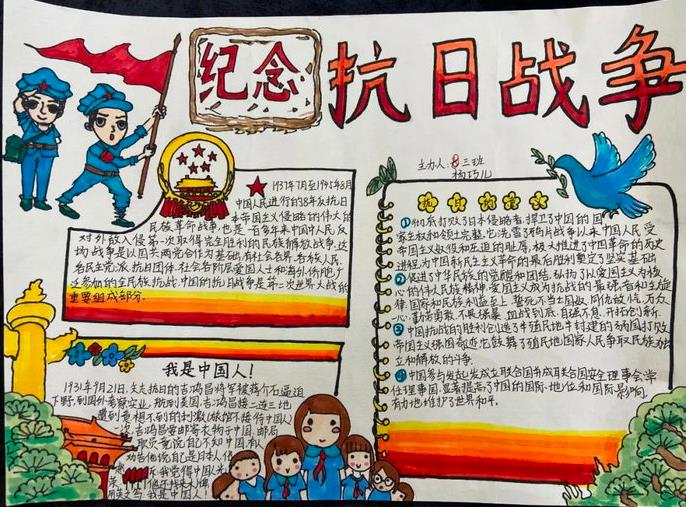 纪念
抗日战争
主办人:8三班
杨巧儿
1937年7月至1945年8月
中国人民进行的8年反抗日
本帝国主义侵略的伟大的
民族革命战争,也是一百多年来中国人民反
对外敌入侵第一次取得完全胜利的民族解放战争,这
场战争是以国共两党合作为基础,有社会各界、各族人民、
各民主党派、抗日团体、社会各阶层爱国人士和海外侨胞广
泛参加的全民族抗战,中国的抗日战争是第二次世界大战的
重要组成部分.
我是中国人!
1931年9月21日,矢志抗日的吉鸿昌将军被蒋介石逼迫
下野,到国外考察实业,船到美国,吉鸿昌接二连三地
遭到意想不到的刺激,(旅馆不接待中国人)
一次,吉鸿昌要邮寄衣物于中国,邮局
职员竟说自己不知中国,有人
劝告他说自己是日本人
我觉得中国人光
他还找来木牌
我是中国人!
①彻底打败了日本侵略者,捍卫了中国的国
家主权和领土完整,它洗雪了鸦片战争以来中国人民受
帝国主义奴役和压迫的耻辱,极大推进了中国革命的历史
进程,为中国新民主主义革命的最后胜利奠定了坚实基础.
②促进了中华民族的觉醒和团结,弘扬了以爱国主义为核
心的伟大民族精神,爱国主义成为抗战的最强者和主旋
律,国家和民族利益至上、誓死不当亡国奴、同仇敌忾、万众
一心、勤劳勇敢、不畏强暴、血战到底、自强不息、开拓创新.
③中国抗战的胜利创造了半殖民地半封建的弱国打败
帝国主义强国奇迹,它鼓舞了殖民地国家人民争取民族独
立和解放的斗争.
④中国参与发起发成立联合国并成联合国安全理事会常
任理事国,显著提高了中国的国际地位和国际影响,
有力地维护了世界和平.